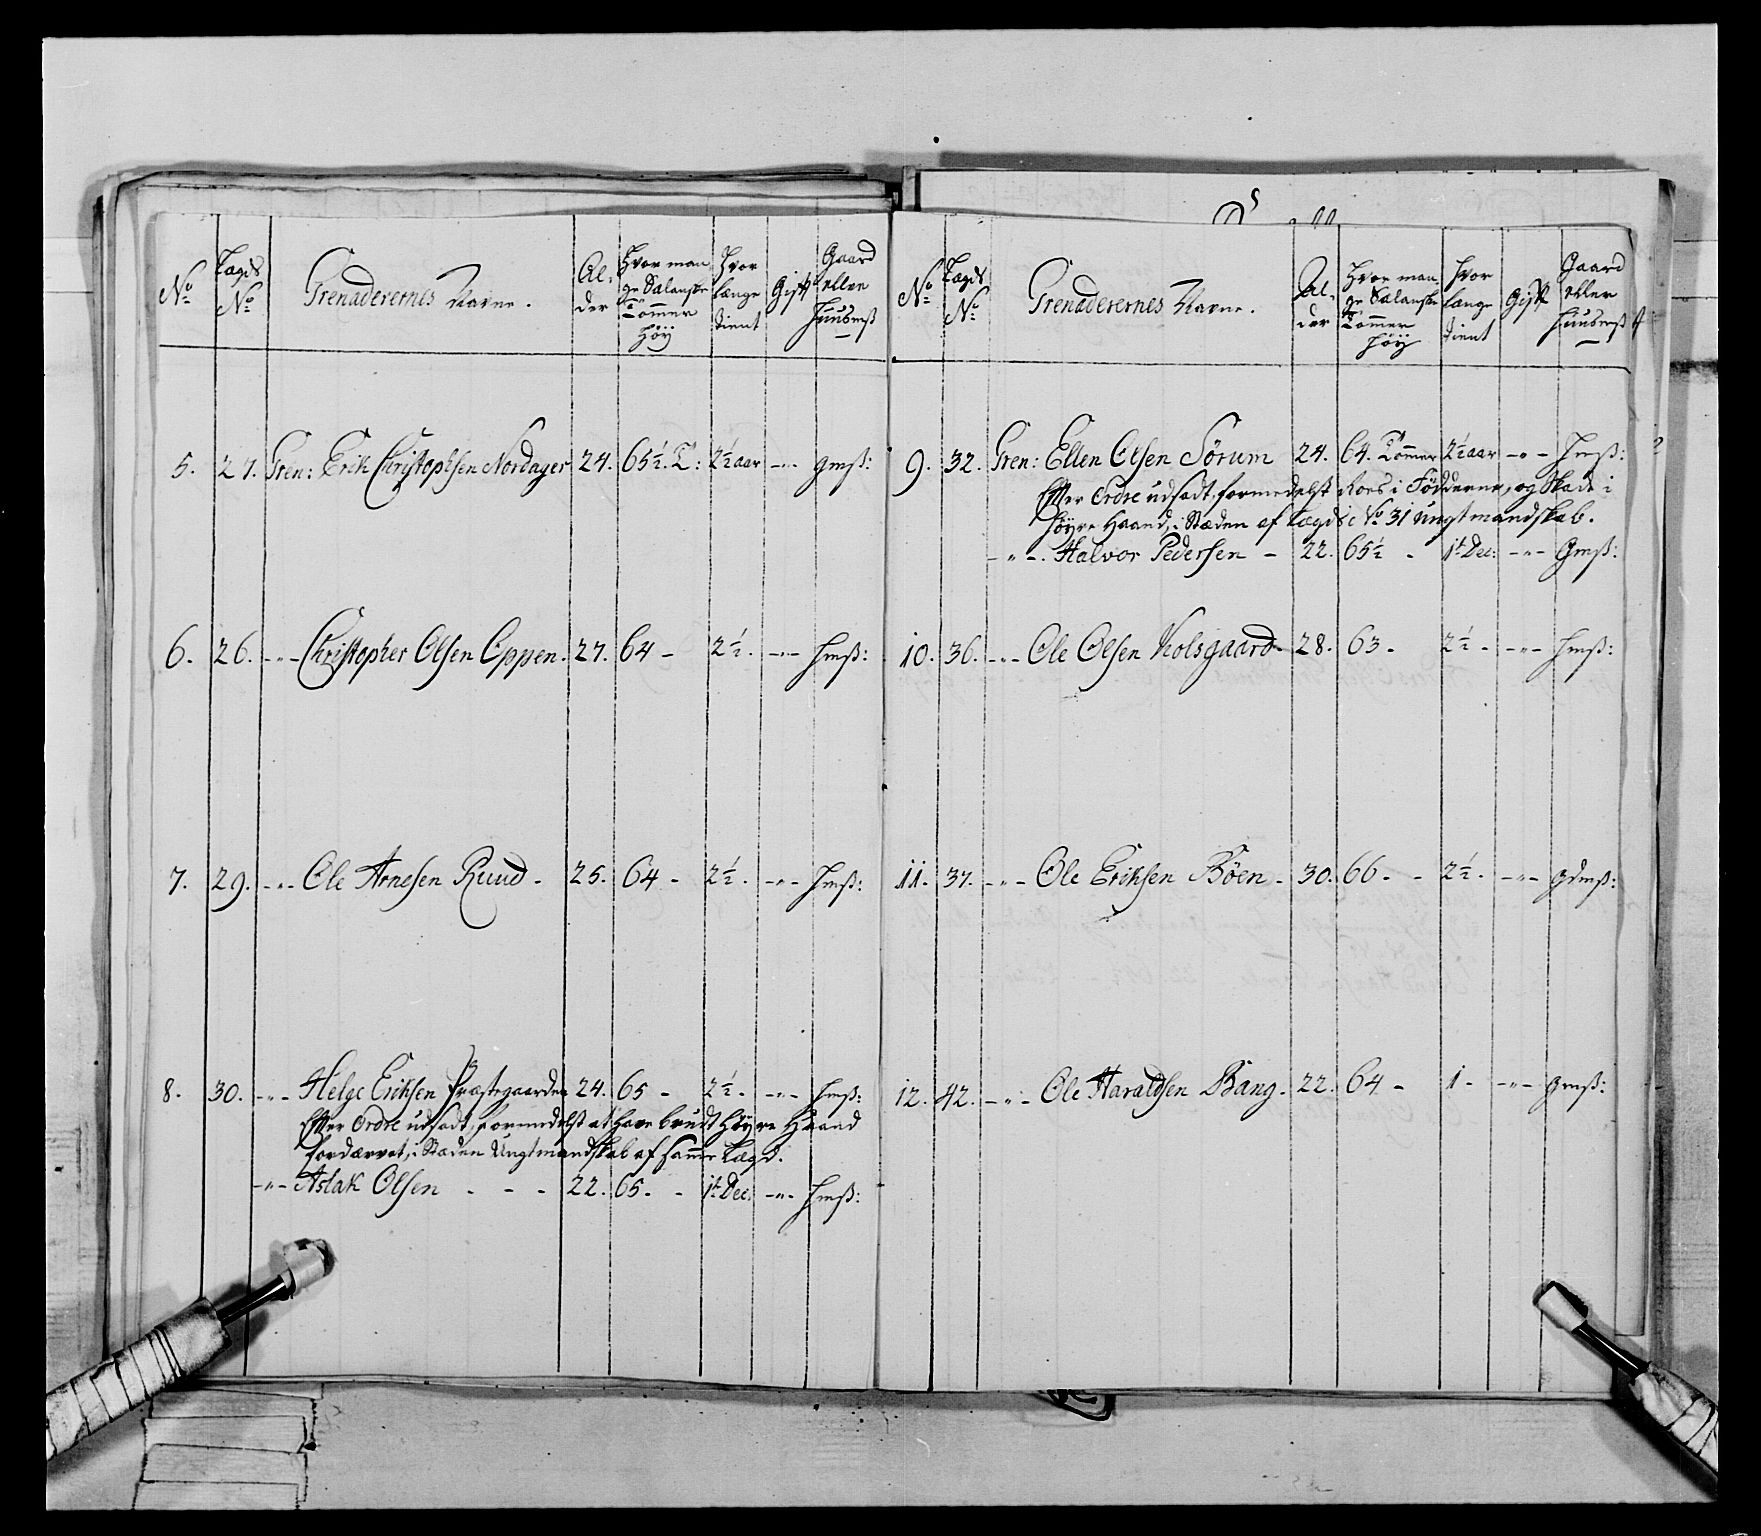 No
Lægds No
Grenaderernes Navne.
Alder
Hvor mange Salanske Tommer høy
Hvor længe tient
Gift
Gaard eller Huusmß
5. 27. Gren: Erik Christophsen Nordager 24. 65½. T: 2½ aar -"- gmß:
6. 26. -"- Christopher Olsen Oppen. 27. 64 - 2½. -"- Hmß:
7. 29. -"- Ole Arnesen Ruud - 25. 64 - 2½. -"- Hmß:
8. 30. -"- Helge Eriksen Præstegaarden 24. 65 - 2½. -"- Hmß:
Efter Ordre udsadt, formedelst at have brudt høyre Haand
fordærvet, i Stæden Ungtmandskab af samme Lægd.
-"- Aslak Olsen - - - 22. 65. - 1t Dec: -"- Hmß:
No
Lægds No
Grenaderernes Navne.
Alder
Hvor mange Salanske Tommer høy
Hvor længe tient
Gift
Gaard eller Huusmß
9. 32. Gren: Ellen Olsen Sörum 24. 64. Tommer 2½ aar -"- Hmß:
Efter Ordre udsadt, formedelst Roes i Födderne, og Skade i
höyre Haand, i Stæden af Lægds No 31 Ungtmandskab.
-"-. Halvor Pedersen - 22. 65½ - 1t Dec: -"- Gmß:
10. 36. -"- Ole Olsen Kolsgaard - 28. 63 - 2½ - -"- Hmß:
11. 37. -"- Ole Eriksen Böen - 30. 66 - - 2½ - -"- gdmß:
12. 42. -"- Ole Haraldsen Bang. 22. 64 - 1 - -"- gmß: